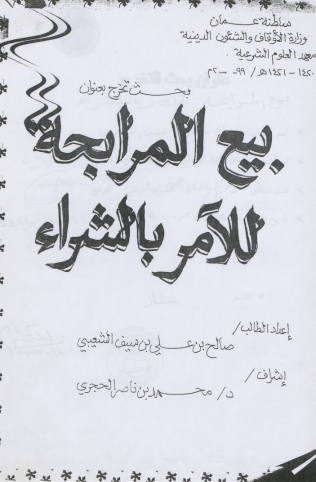 سلطنة عمان
وزارة الأوقاف والشئون الدينية
معهد العلوم الشرعية
١٤٢٠ - ١٤٢١هـ / ٩٩ - ٢٠٠٠
بحث تخرج بعنوان
بيع المرابحة
للآمر بالشراء
إعداد الطالب /
صالح بن علي بن سيف الشعيبي
إشراف /
د/ محمد بن ناصر الحجري